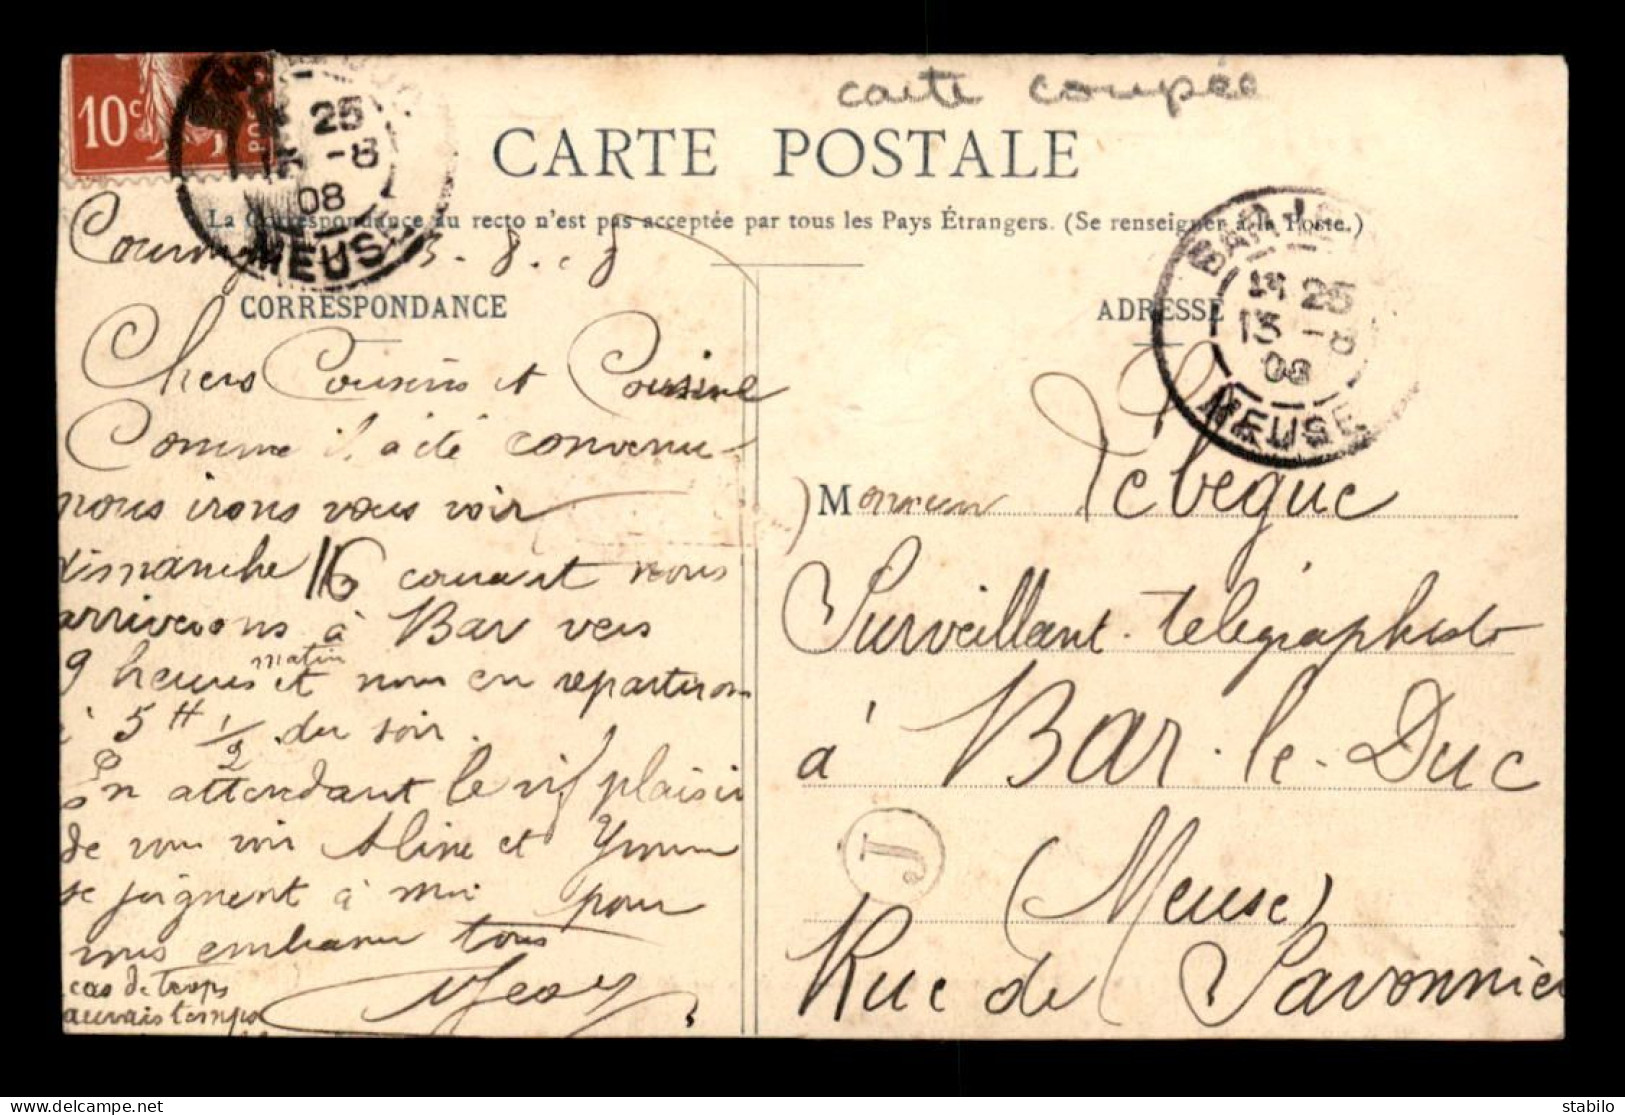 carte coupée
10c
POS
25
13 -8
08
MEUSE
CARTE POSTALE
La Correspondance au recto n'est pas acceptée par tous les Pays Étrangers. (Se renseigner à la Poste.)
3-8-8
CORRESPONDANCE
Chers Cousins et Cousine
Comme il a été convenu
nous irons vous voir
dimanche 16 courant nous
arriverons à Bar vers
9 heures matin et nous en repartirons
à 5H 1/2 du soir.
En attendant le vif plaisir
de vous voir Aline et
se joignent à moi pour
vous embrasser tous
cas de trops
auvais temps
ADRESSE
BAR-LE
25
13 -8
08
MEUSE
Monsieur Lebegue
Surveillant télégraphiste
à Bar-le-Duc
J
(Meuse)
Rue de Savonnièr
stabilo